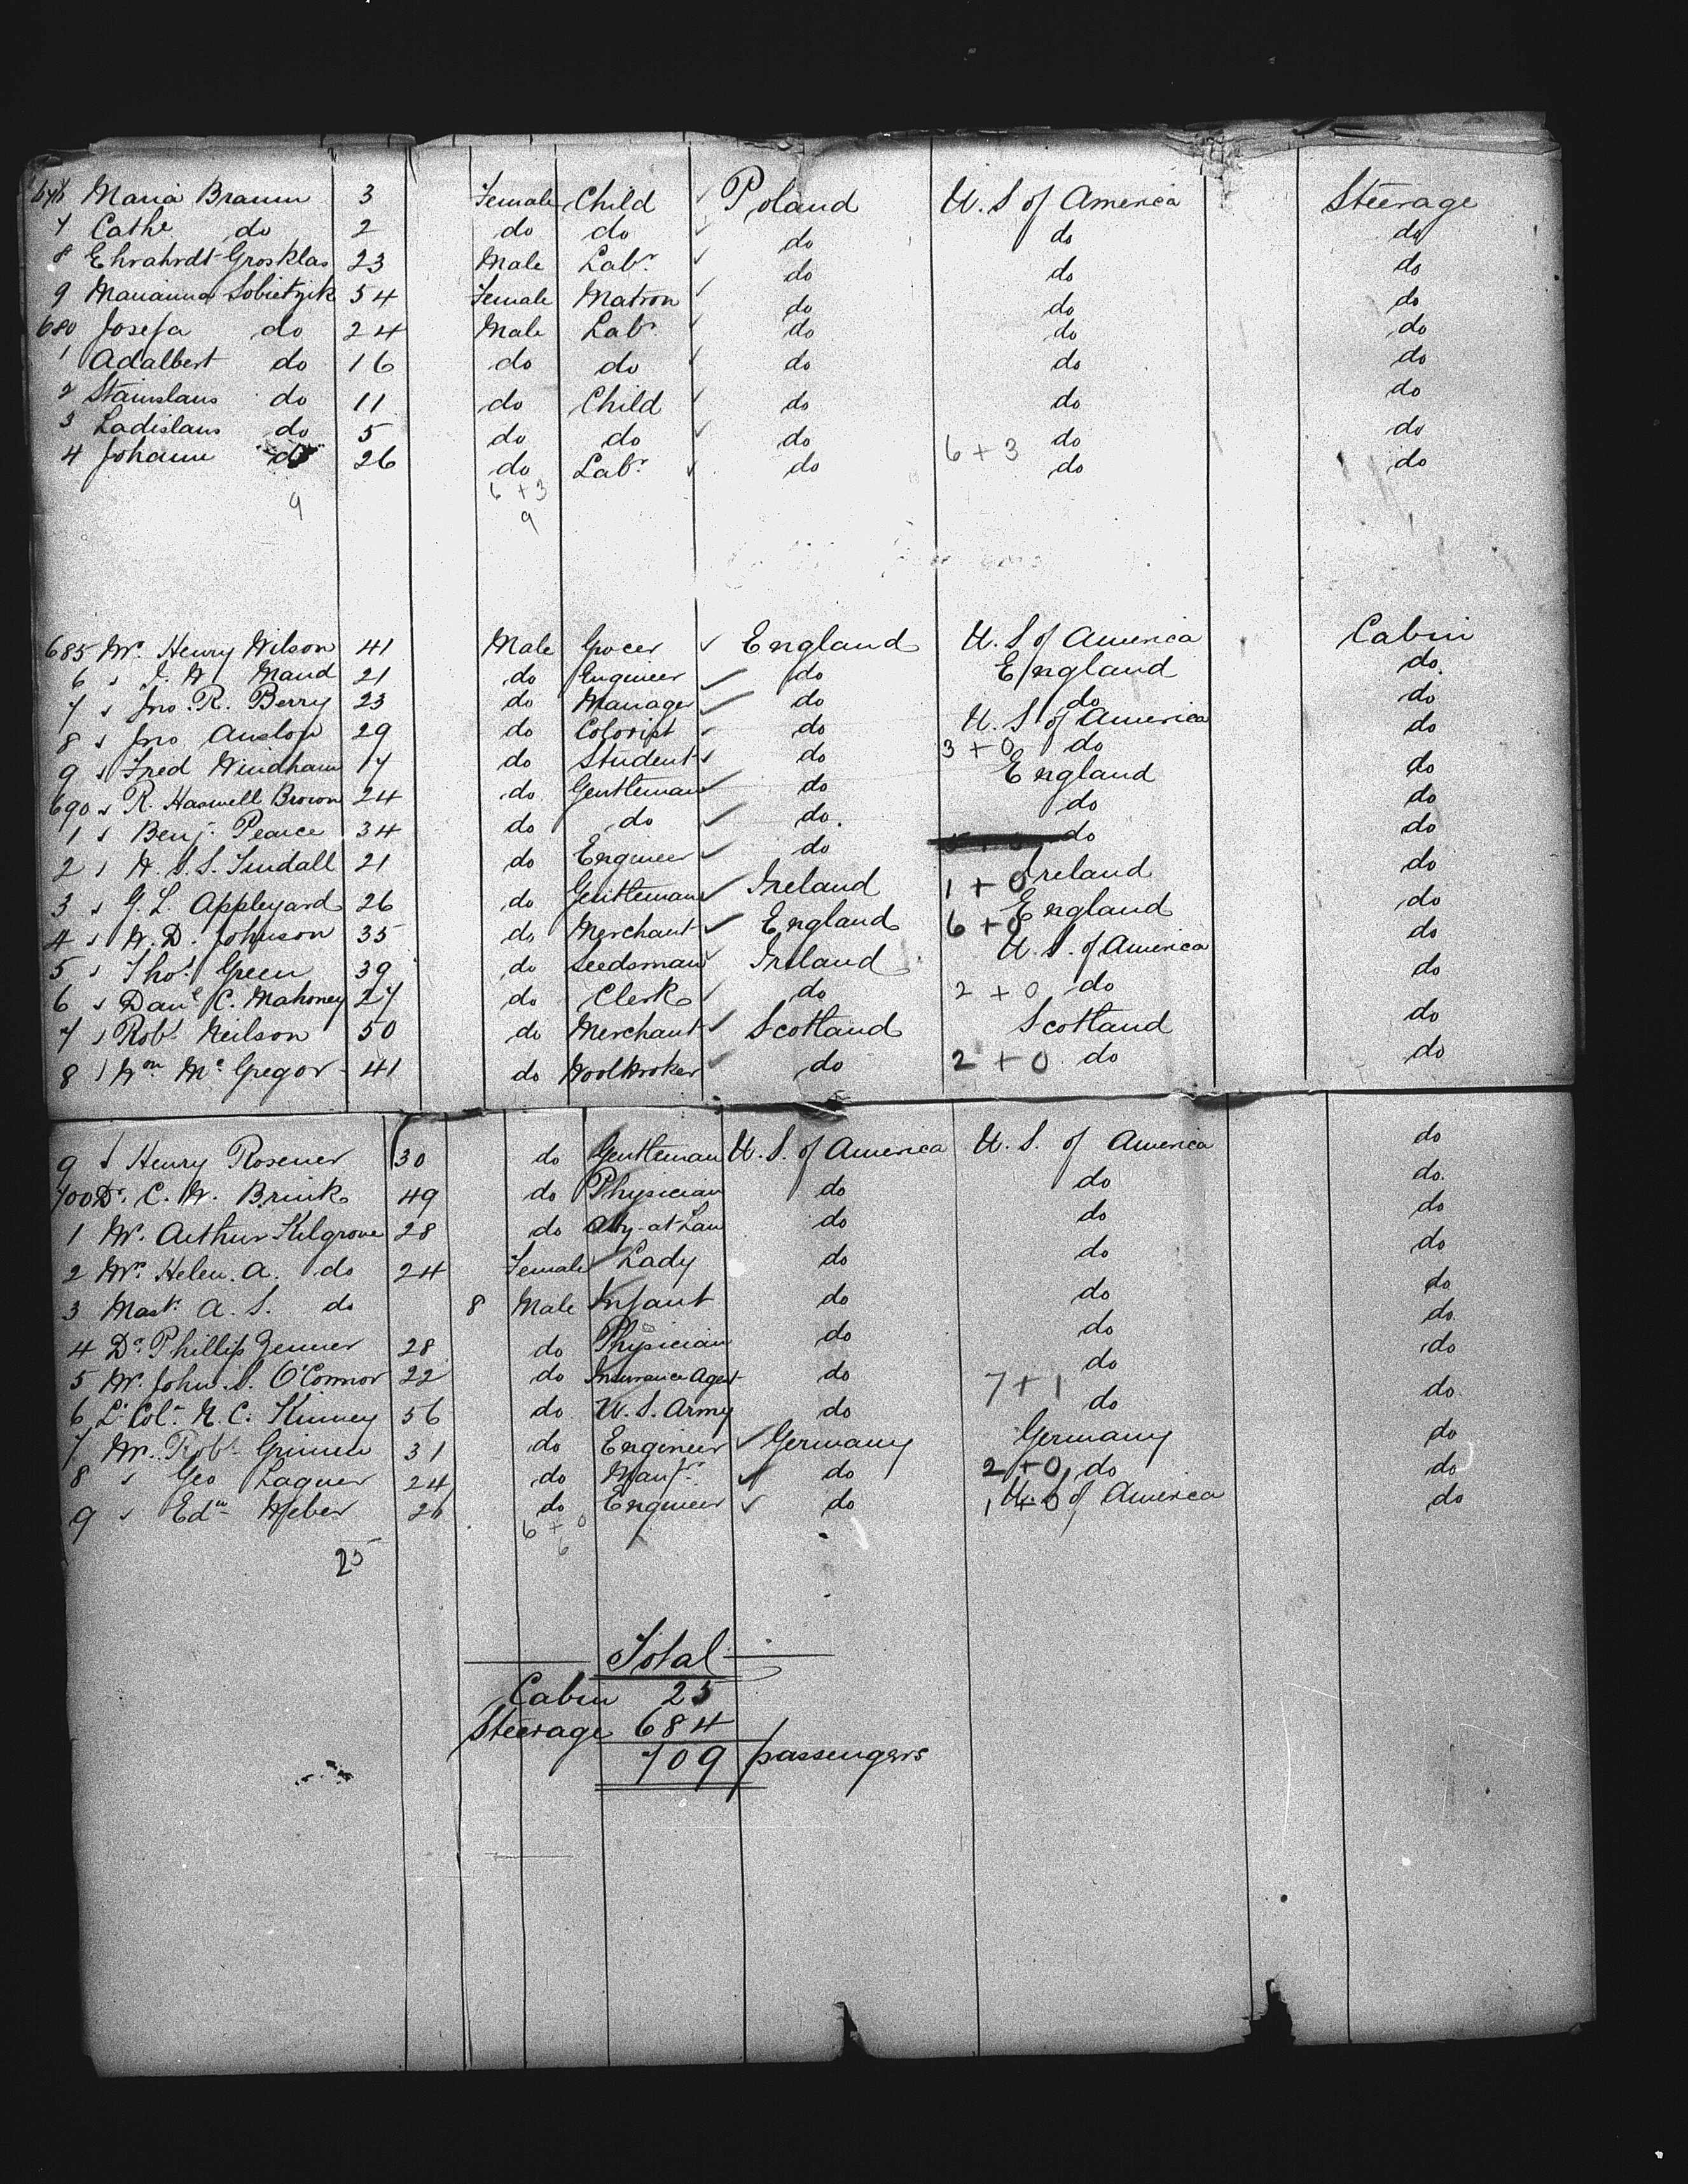 676 Maria Braum 3 Female Child ✓ Poland U. S of America Steerage
7 Cathe do 2 do do ✓ do do do
8 Ehrahrdt Grosklas 23 Male Labr. ✓ do do do
9 Marianna Sobietzik 54 Female Matron ✓ do do do
680 Josefa do 24 Male Labr. ✓ do do do
1 Adalbert do 16 do do ✓ do do do
2 Stanislaus do 11 do Child ✓ do do do
3 Ladislaus do 5 do do ✓ do 6+3 do do
4 Johann do 26 do Labr. ✓ do do do
9 6+3
9
685 Mr. Henry Wilson 41 Male Grocer ✓ England U. S of America Cabin
6 s J. W Mand 21 do Engineer ✓ do England do.
7 s Jno. R. Berry 23 do Manager ✓ do do do
8 s Jno Anslow 29 do Colorist ✓ do U. S of America do
9 s Fred Windham 17 do Student ✓ do 3+0 do do
690 s R. Haswell Brown 24 do Gentleman ✓ do England do
1 s Benj. Pearce 34 do do ✓ do. do do
2 s H. S. S. Tindall 21 do Engineer ✓ do do do
3 s G. L Appleyard 26 do Gentleman ✓ Ireland 1+0 Ireland do
4 s W. D. Johnson 35 do Merchant ✓ England 6+0 England do
5 s Thos. Green 39 do Seedsman ✓ Ireland U. S. of America do
6 s Danl C. Mahoney 27 do Clerk ✓ do 2+0 do do
7 s Robt Neilson 50 do Merchant ✓ Scotland Scotland do
8 s Wm Mc Gregor 41 do Woolbroker ✓ do 2+0 do do
9 s Henry Rosener 30 do Gentleman U. S. of America U. S. of America do
700 Dr. C. W. Brink 49 do Physician do do do.
1 Mr. Arthur Kilgrove 28 do Atty-at Law do do do
2 Mrs Helen. A. do 24 Female Lady do do do
3 Mastr A. S. do 8 Male Infant do do do
4 Dr. Phillip Zenner 28 do Physician do do do.
5 Mr. John. S. O'Connor 22 do Insurance Agent do 7+1 do do
6 Lt Coln N. C. Kinney 56 do U. S. Army do do do.
7 Mr. Robt Grimm 31 do Engineer ✓ Germany Germany do
8 s Geo Laquer 24 do Manfr. ✓ do 2+0 do do
9 s Edn Weber 26 do Engineer ✓ do 1+0 U. S of America do
6+0
6
25
Total
Cabin 25
Steerage 684
709 passengers